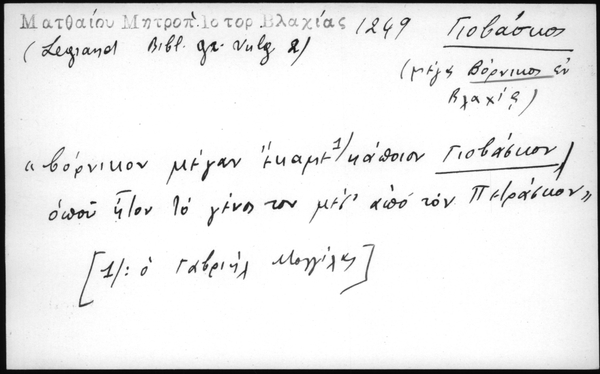 Ματθαίου Μητροπ. Ιστορ Βλαχίας 1249 Γιοβάσκος
(Legrand Bibl. gr. vulg 2) (μέγας Βόρνικος ἐν
Βλαχίᾳ)
"βόρνικον μέγαν ἔκαμε 1/ κάποιον Γιοβάσκον/
ὁποῦ ἦτον τὸ γένος του μέσ' ἀπὸ τὸν Πετράσκον"
[1/: ὁ Γαβριὴλ Μογγίλας]